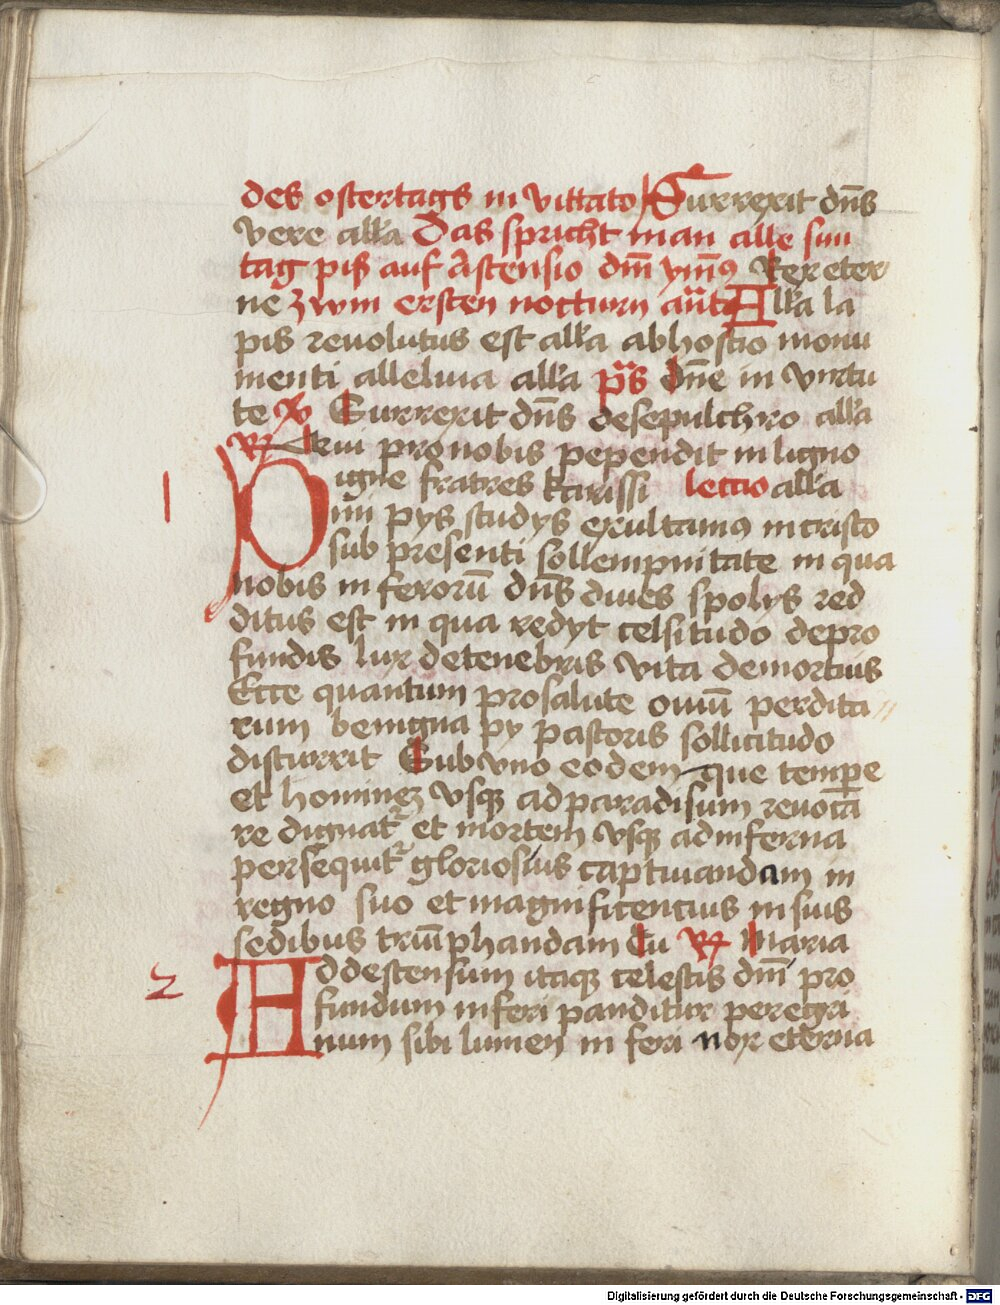 des ostertags in vittato Surrexit dn̄s
vere all̄a Das spricht man alle sun
tag piß auf Astensio dm̄ ymn9 Rex eter
ne zwm ersten nocturn ann̄t All̄a la
pis reuolutus est all̄a abhostio monu
menti alleluia all̄a ps̄ Dn̄e in virtu
te V Surrexit dn̄s desepulchro all̄a
R Qui pro nobis pependit in ligno
1 Digne fratres karissi lectio all̄a
mi pys studys exultamus in cristo
sub presenti sollempnitate in qua
nobis inferorū dn̄s diues spolys red
ditus est in qua redyt celsitudo depro
fundis lux detenebris vita demortuis
Ecce quantum prosalute ouiū perdita
rum benigna py pastoris sollicitudo
discurrit Sub vno eodem que temp̄e
et hominez vsq3 adparadisum reuoca
re dignat᷑ et mortem vsq3 adinferna
persequit᷑ gloriosius captiuandam in
regno suo et magnificencius in suis
sedibus triūphandam Tu R Maria
2 Addescensum itaq3 celestis dm̄ pro
fundum inferi panditur peregri
num sibi lumen in feri nox eterna
Digitalisierung gefördert durch die Deutsche Forschungsgemeinschaft - DFG